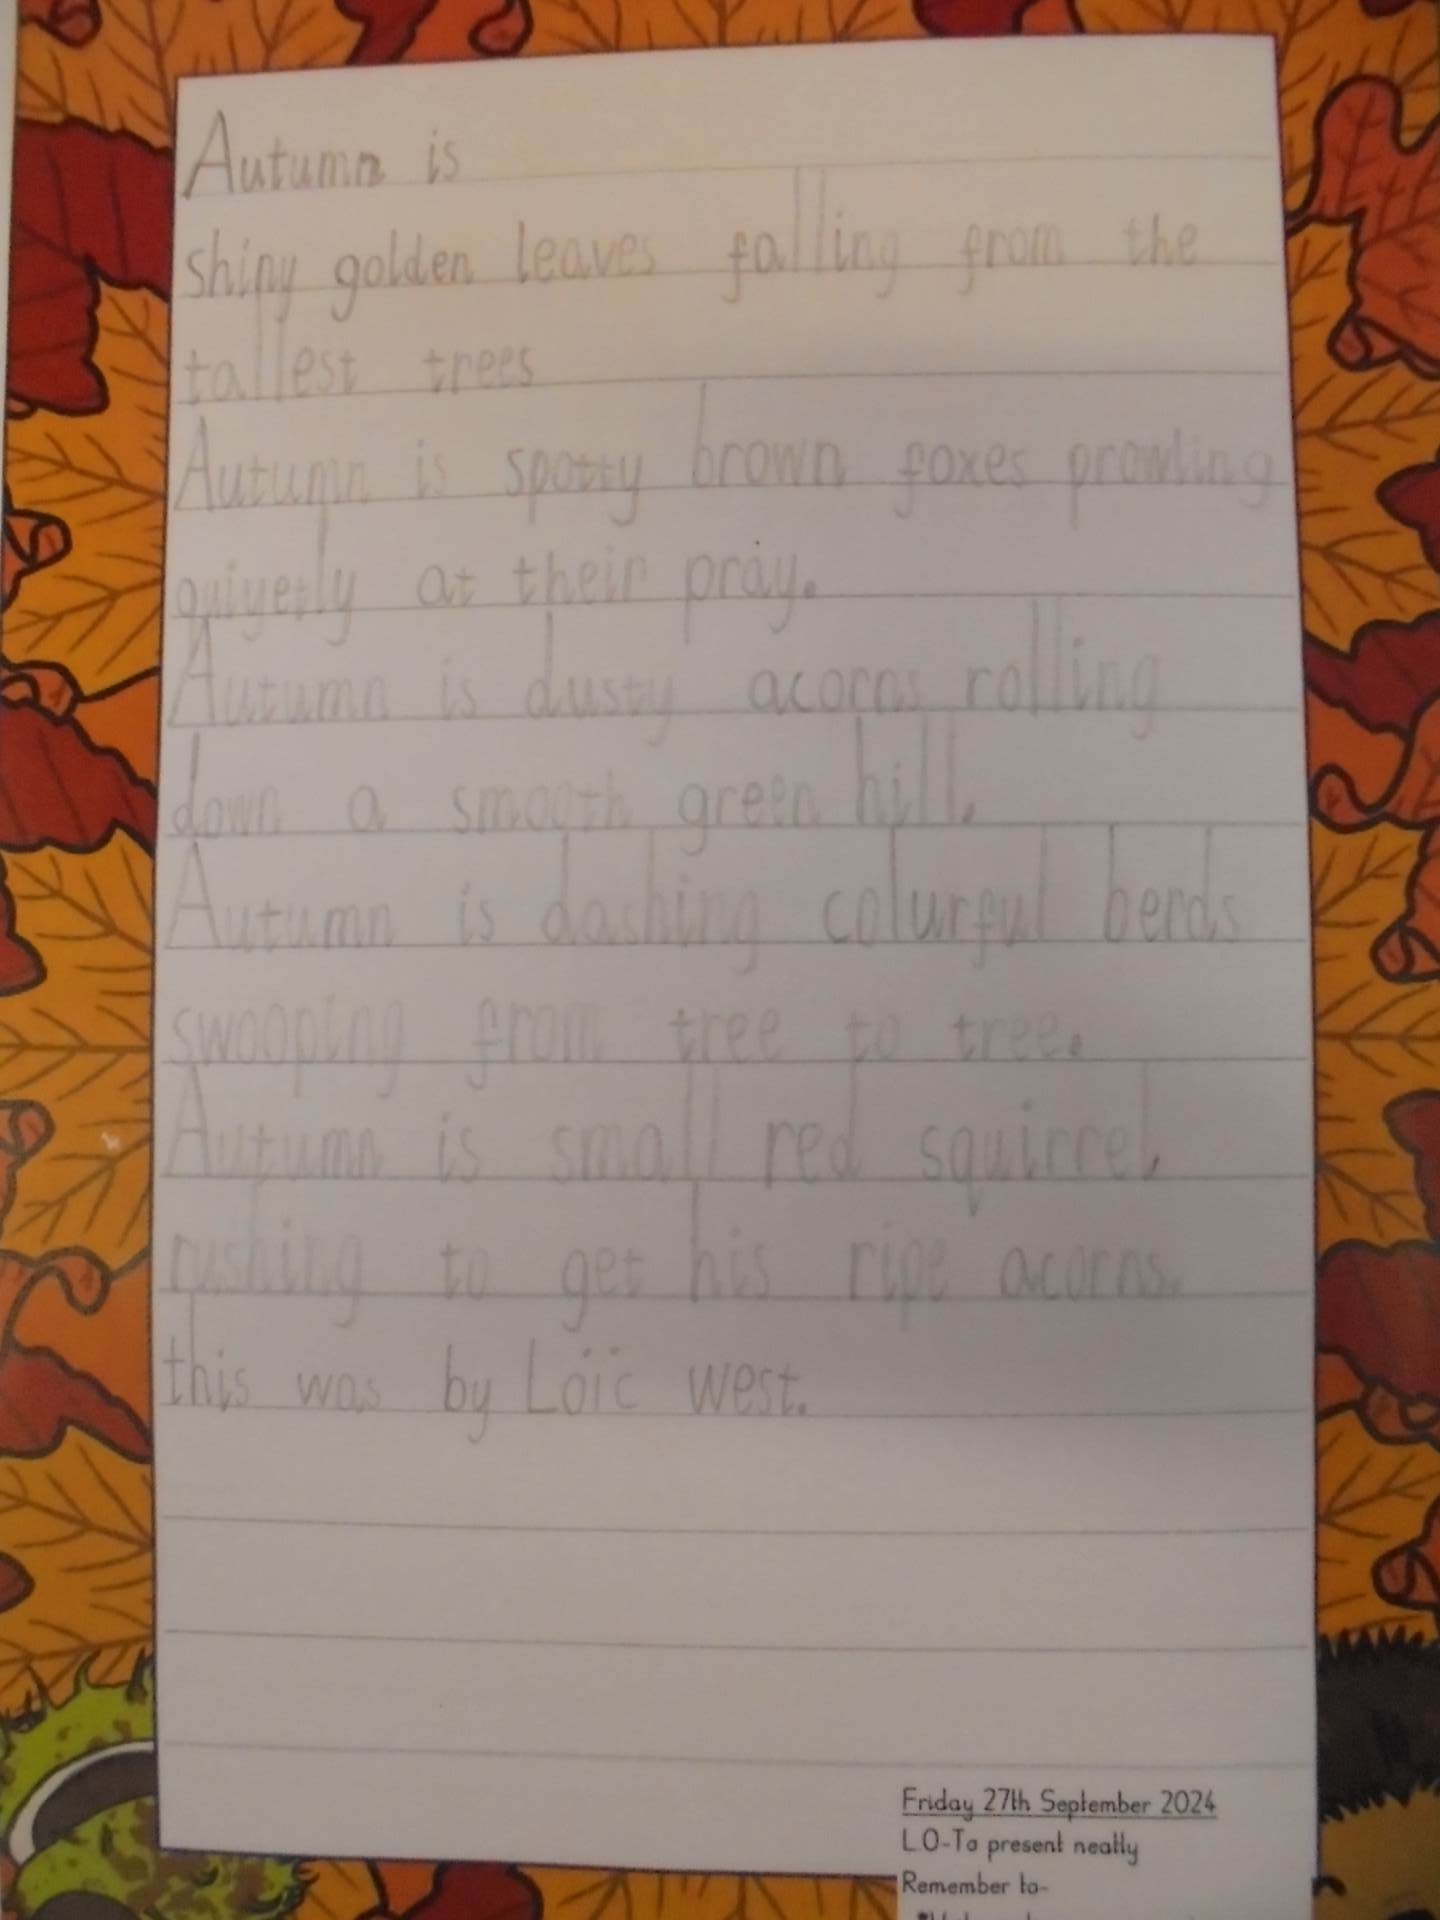 Autumn is
shiny golden leaves falling from the
tallest trees
Autumn is spotty brown foxes prowling
quiyetly at their pray.
Autumn is dusty acorns rolling
down a smooth green hill.
Autumn is dashing colurful berds
swooping from tree to tree.
Autumn is small red squirrel
rushing to get his ripe acorns.
this was by Loïc west.
Friday 27th September 2024
LO-To present neatly
Remember to-